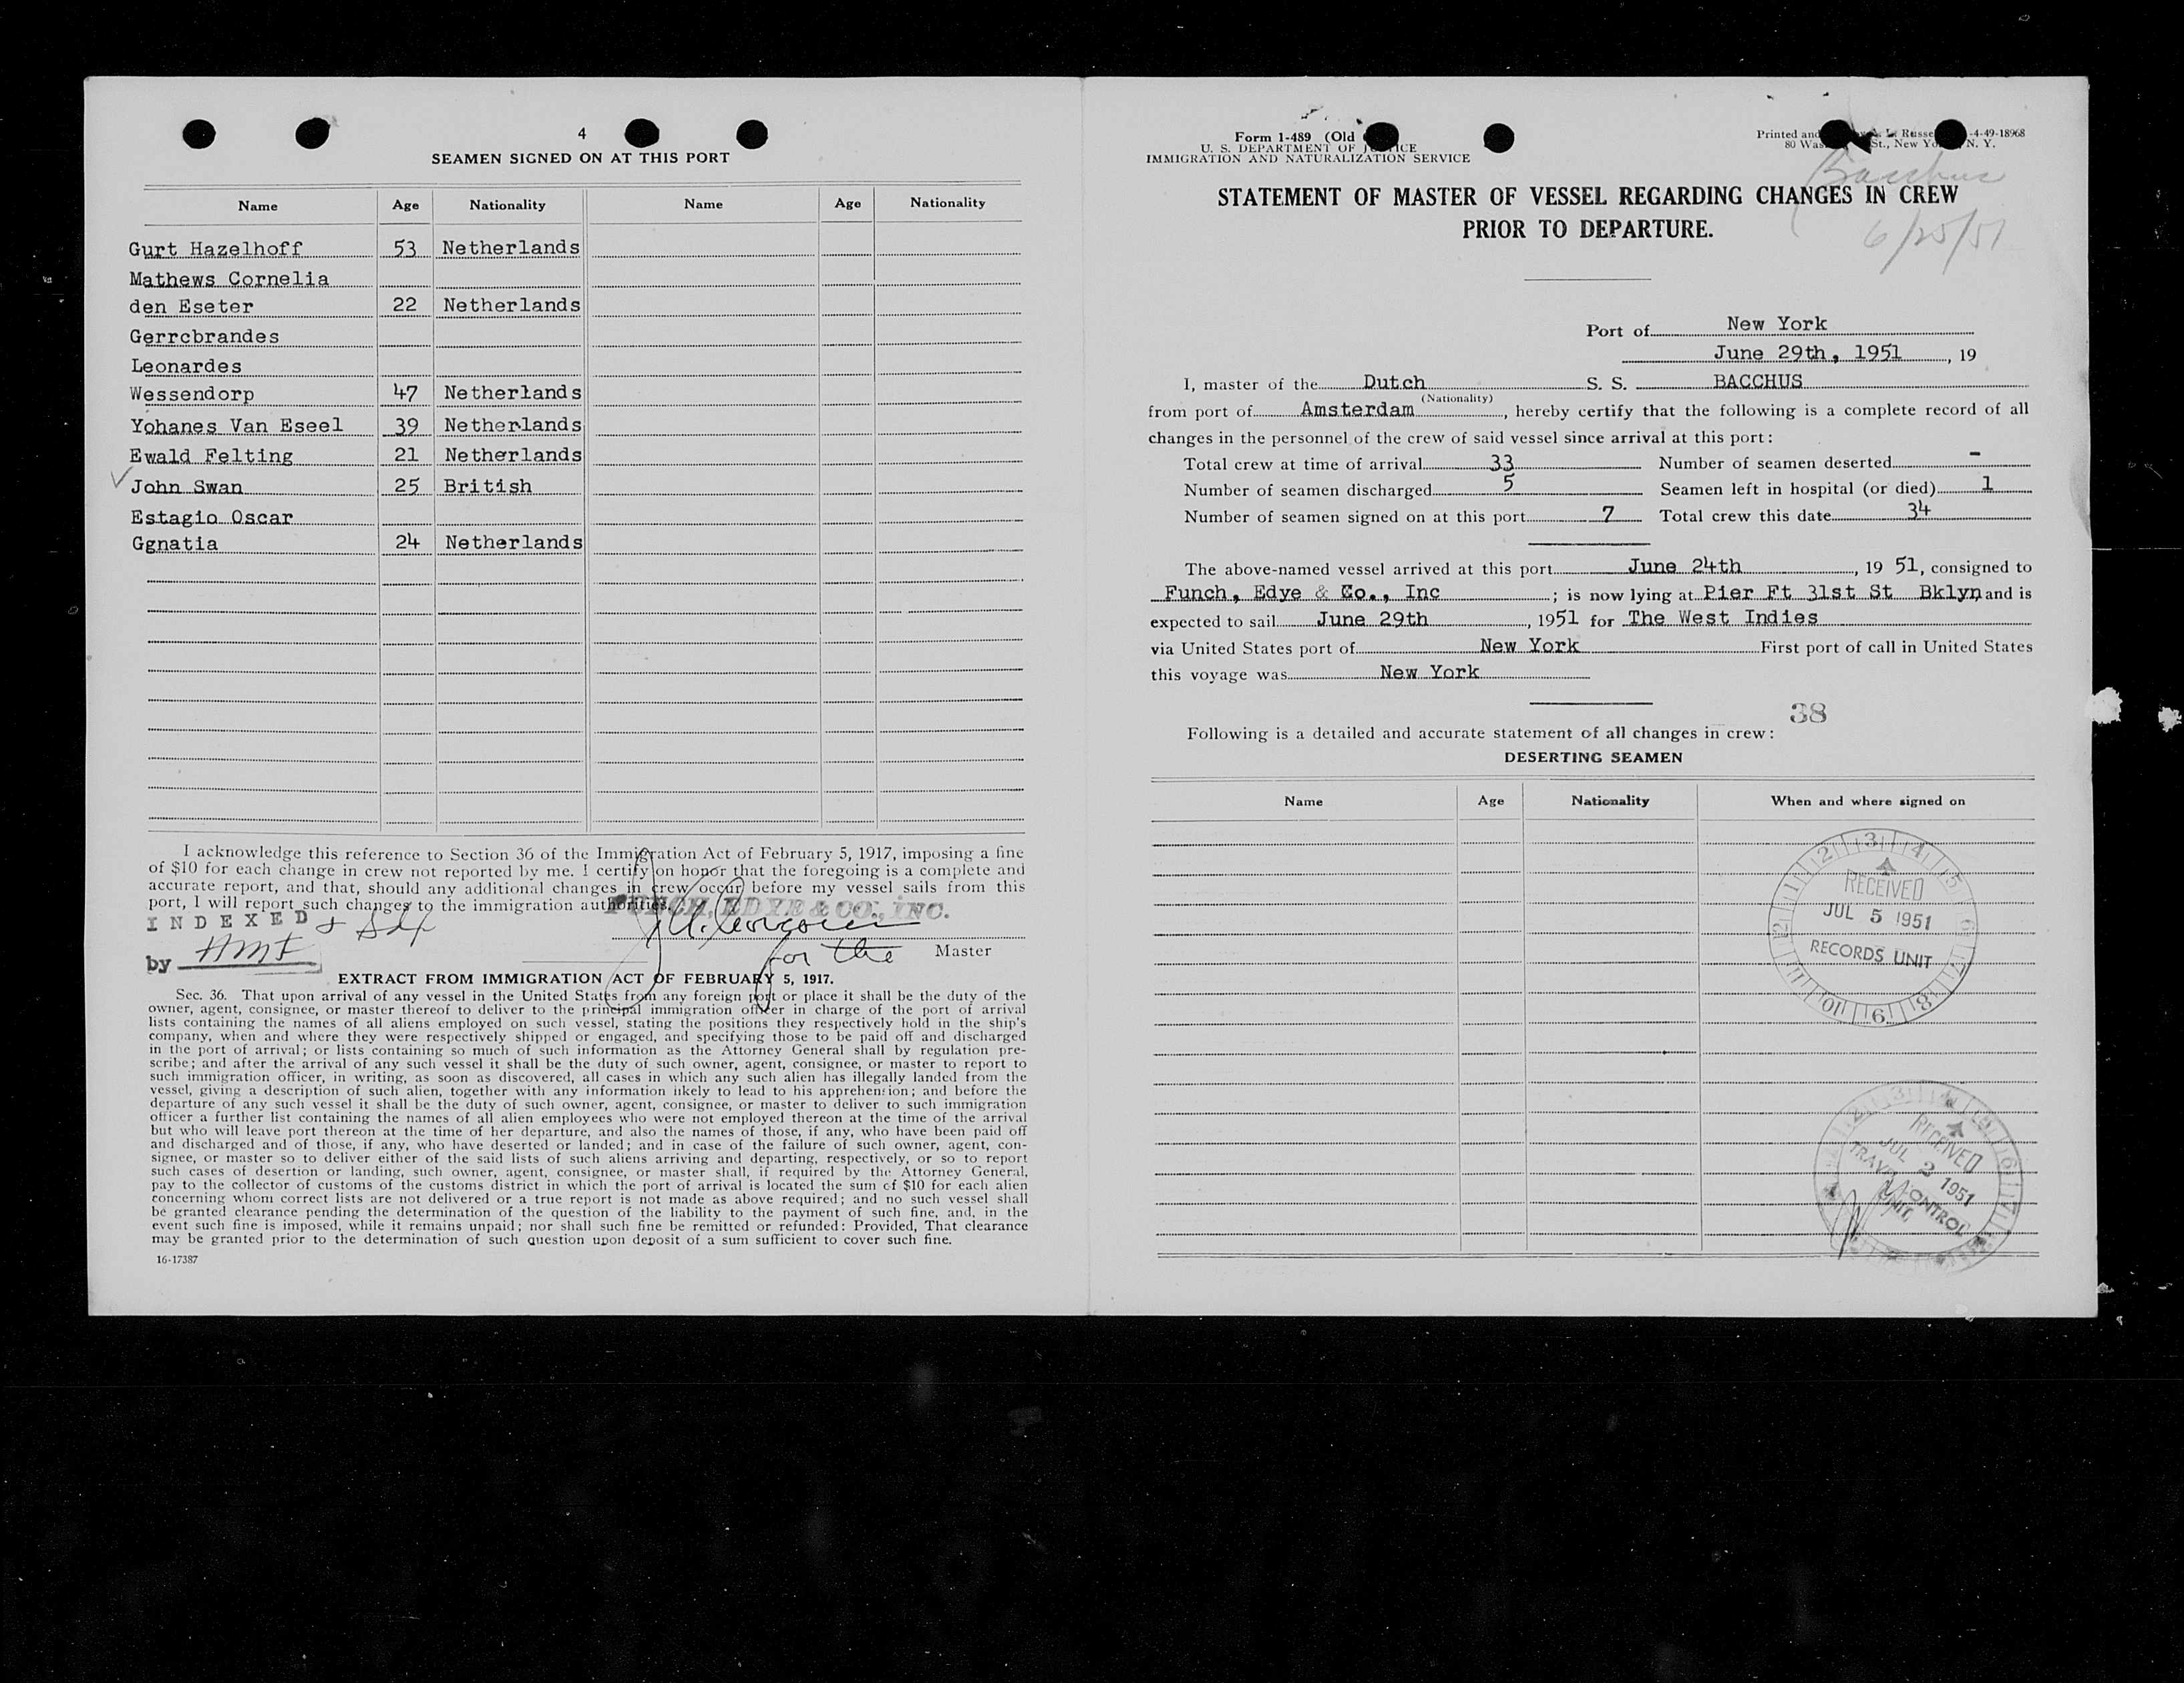 4
SEAMEN SIGNED ON AT THIS PORT
Name Age Nationality Name Age Nationality
Gurt Hazelhoff 53 Netherlands
Mathews Cornelia
den Eseter 22 Netherlands
Gerrcbrandes
Leonardes
Wessendorp 47 Netherlands
Yohanes Van Eseel 39 Netherlands
Ewald Felting 21 Netherlands
✓ John Swan 25 British
Estagio Oscar
Ggnatia 24 Netherlands
I acknowledge this reference to Section 36 of the Immigration Act of February 5, 1917, imposing a fine
of $10 for each change in crew not reported by me. I certify on honor that the foregoing is a complete and
accurate report, and that, should any additional changes in crew occur before my vessel sails from this
port, I will report such changes to the immigration authorities.
FUNCH, EDYE & CO., INC.
INDEXED
by HMF
for the Master
EXTRACT FROM IMMIGRATION ACT OF FEBRUARY 5, 1917.
Sec. 36. That upon arrival of any vessel in the United States from any foreign port or place it shall be the duty of the
owner, agent, consignee, or master thereof to deliver to the principal immigration officer in charge of the port of arrival
lists containing the names of all aliens employed on such vessel, stating the positions they respectively hold in the ship's
company, when and where they were respectively shipped or engaged, and specifying those to be paid off and discharged
in the port of arrival; or lists containing so much of such information as the Attorney General shall by regulation pre-
scribe; and after the arrival of any such vessel it shall be the duty of such owner, agent, consignee, or master to report to
such immigration officer, in writing, as soon as discovered, all cases in which any such alien has illegally landed from the
vessel, giving a description of such alien, together with any information likely to lead to his apprehension; and before the
departure of any such vessel it shall be the duty of such owner, agent, consignee, or master to deliver to such immigration
officer a further list containing the names of all alien employees who were not employed thereon at the time of the arrival
but who will leave port thereon at the time of her departure, and also the names of those, if any, who have been paid off
and discharged and of those, if any, who have deserted or landed; and in case of the failure of such owner, agent, con-
signee, or master so to deliver either of the said lists of such aliens arriving and departing, respectively, or so to report
such cases of desertion or landing, such owner, agent, consignee, or master shall, if required by the Attorney General,
pay to the collector of customs of the customs district in which the port of arrival is located the sum of $10 for each alien
concerning whom correct lists are not delivered or a true report is not made as above required; and no such vessel shall
be granted clearance pending the determination of the question of the liability to the payment of such fine, and, in the
event such fine is imposed, while it remains unpaid; nor shall such fine be remitted or refunded: Provided, That clearance
may be granted prior to the determination of such question upon deposit of a sum sufficient to cover such fine.
16-17387
Form 1-489 (Old
U. S. DEPARTMENT OF JUSTICE
IMMIGRATION AND NATURALIZATION SERVICE
Printed and Russe -4-49-18968
80 Was St., New Yo N. Y.
Bacchus
6/25/51
STATEMENT OF MASTER OF VESSEL REGARDING CHANGES IN CREW
PRIOR TO DEPARTURE.
Port of New York
June 29th, 1951, 19
I, master of the Dutch S. S. BACCHUS
(Nationality)
from port of Amsterdam, hereby certify that the following is a complete record of all
changes in the personnel of the crew of said vessel since arrival at this port:
Total crew at time of arrival 33 Number of seamen deserted -
Number of seamen discharged 5 Seamen left in hospital (or died) 1
Number of seamen signed on at this port 7 Total crew this date 34
The above-named vessel arrived at this port June 24th, 19 51, consigned to
Funch, Edye & Co., Inc ; is now lying at Pier Ft 31st St Bklyn and is
expected to sail June 29th, 1951 for The West Indies
via United States port of New York First port of call in United States
this voyage was New York
38
Following is a detailed and accurate statement of all changes in crew:
DESERTING SEAMEN
Name Age Nationality When and where signed on
1 2 3 4 5 6 7 8 9 10 11 12
RECEIVED
JUL 5 1951
RECORDS UNIT
RECEIVED
JUL 2 1951
TRAVEL CONTROL
UNIT,